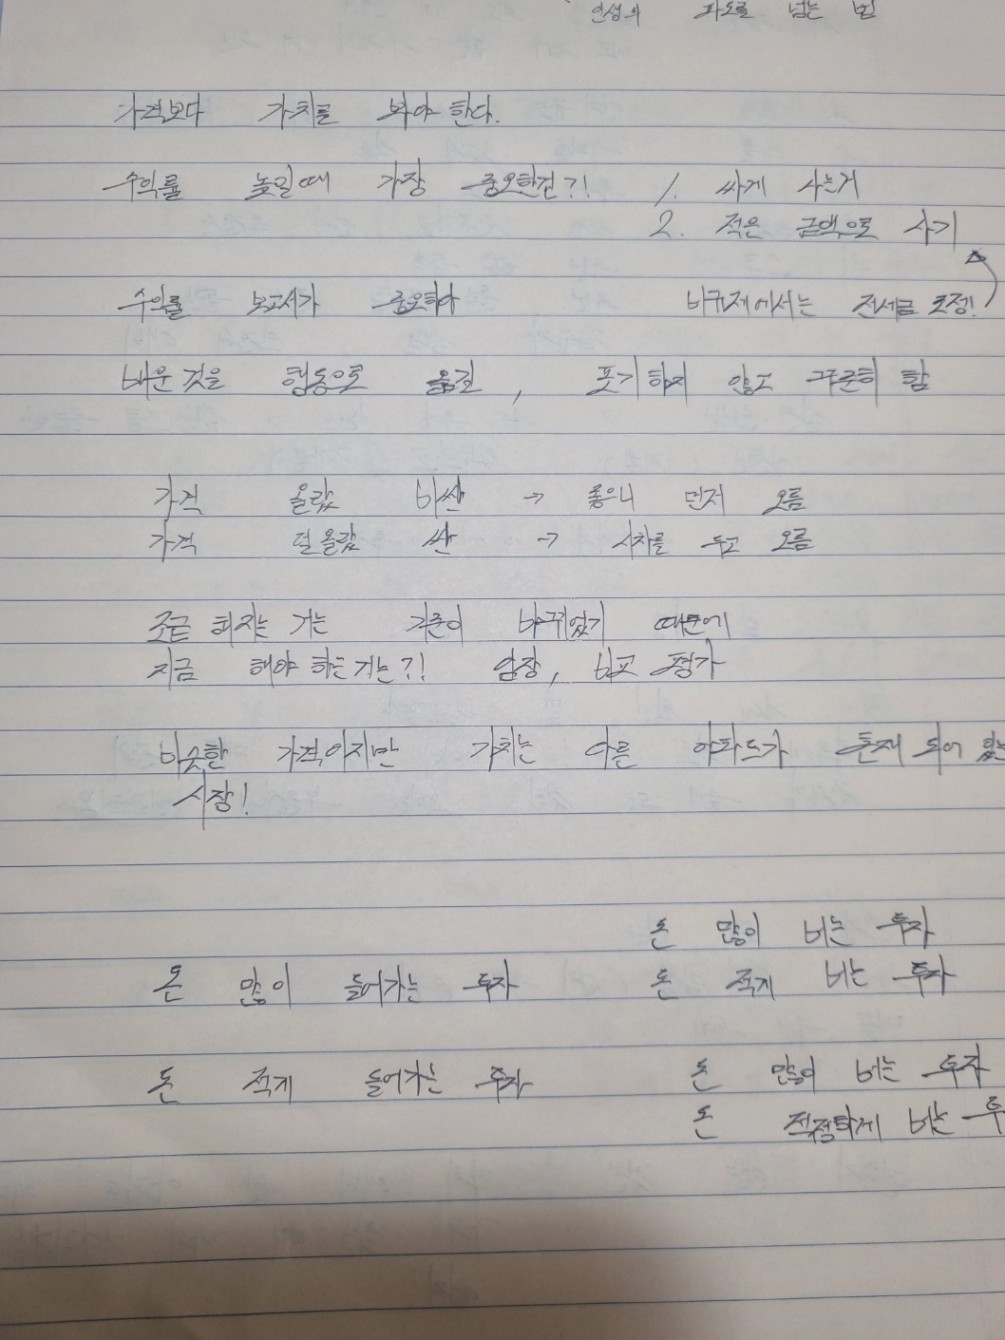 인생의 파도를 넘는 법
가격보다 가치를 봐야 한다.
수익률 높일때 가장 중요한건?! 1. 싸게 사는거
2. 적은 금액으로 사기
수익률 보고서가 중요하다 비규제에서는 전세금 조정!
배운 것을 행동으로 옮김, 포기하지 않고 꾸준히 함
가격 올랐 비싼 → 좋으니 먼저 오름
가격 덜 올랐 싼 → 시차를 두고 오름
조급 해지는 거는 기준이 바뀌었기 때문에
지금 해야 하는거는?! 임장, 비교 평가
비슷한 가격이지만 가치는 다른 아파트가 혼재 되어 있는
시장!
돈 많이 버는 투자
돈 많이 들어가는 투자 돈 적게 버는 투자
돈 적게 들어가는 투자 돈 많이 버는 투자
돈 적정하게 버는 투